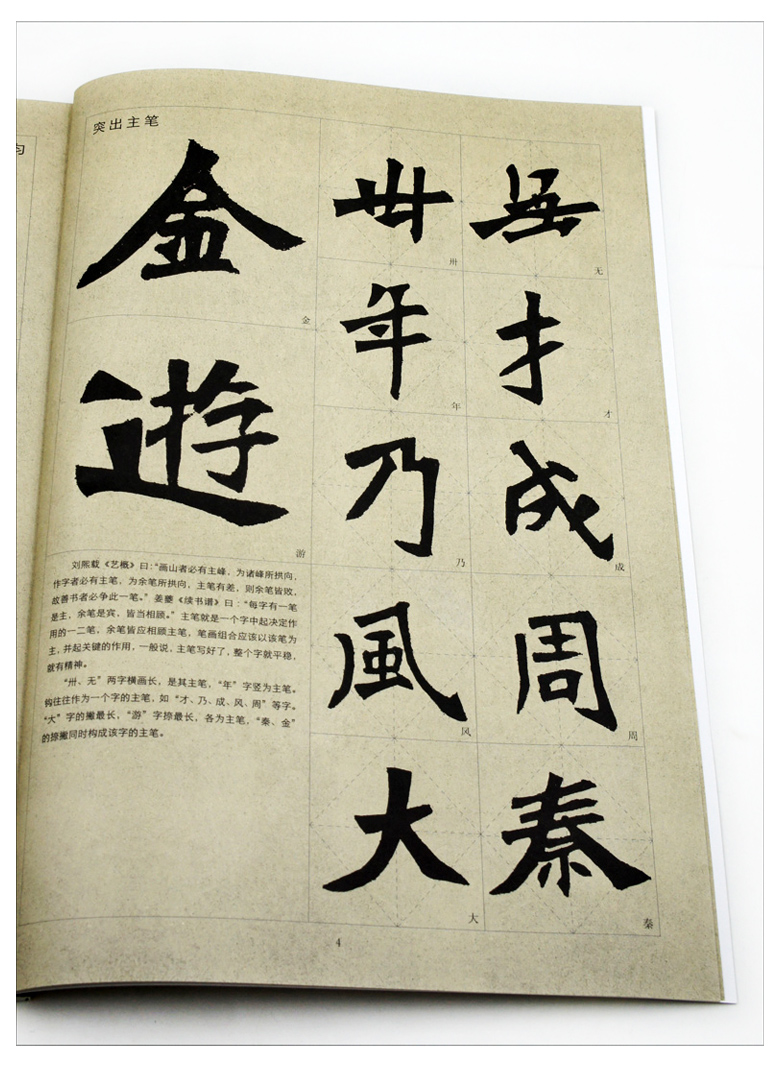 突出主笔
金
金
遊
游
卅
卅
年
年
乃
乃
風
风
大
大
無
无
才
才
成
成
周
周
秦
秦
刘熙载《艺概》曰：“画山者必有主峰，为诸峰所拱向，
作字者必有主笔，为余笔所拱向，主笔有差，则余笔皆败，
故善书者必争此一笔。”姜夔《续书谱》曰：“每字有一笔
是主，余笔是宾，皆当相顾。”主笔就是一个字中起决定作
用的一二笔，余笔皆应相顾主笔，笔画组合应该以该笔为
主，并起关键的作用，一般说，主笔写好了，整个字就平稳，
就有精神。
“卅、无”两字横画长，是其主笔，“年”字竖为主笔。
钩往往作为一个字的主笔，如“才、乃、成、风、周”等字。
“大”字的撇最长，“游”字捺最长，各为主笔，“秦、金”
的捺撇同时构成该字的主笔。
4